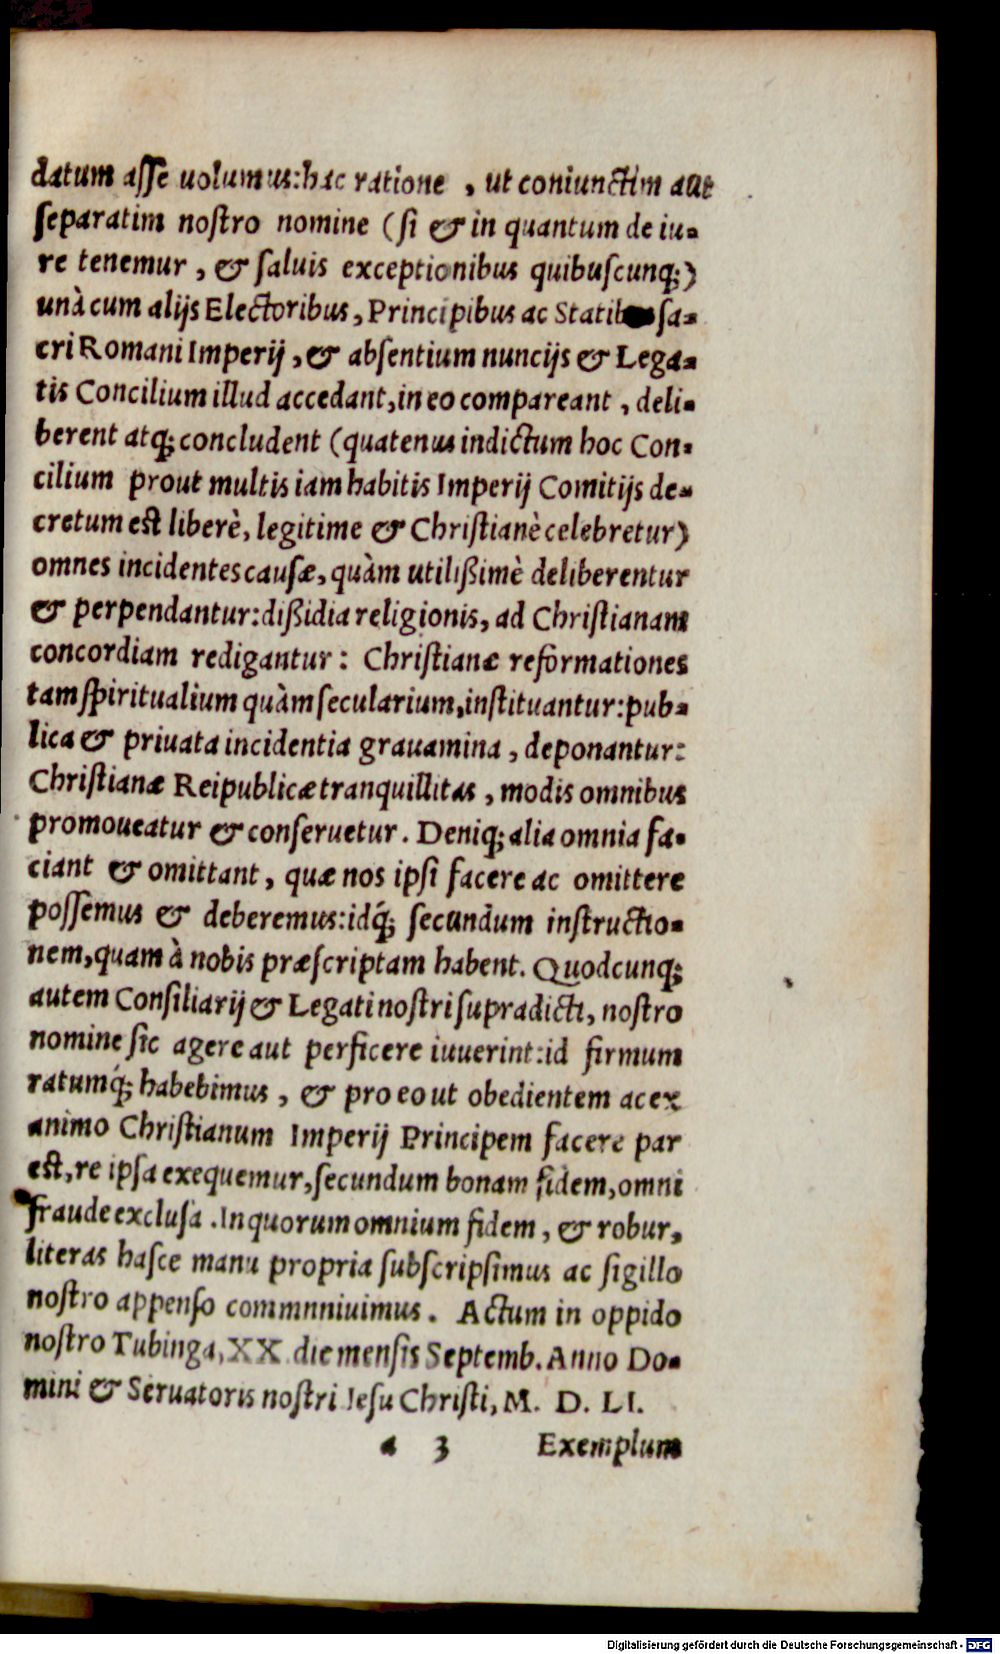 datum asse uolumus: hac ratione, ut coniunctim aut
separatim nostro nomine (si & in quantum de iu-
re tenemur, & saluis exceptionibus quibuscunq;)
unà cum alijs Electoribus, Principibus ac Statibus sa-
cri Romani Imperij, & absentium nuncijs & Lega-
tis Concilium illud accedant, in eo compareant, deli-
berent atq; concludent (quatenus indictum hoc Con-
cilium prout multis iam habitis Imperij Comitijs de-
cretum est liberè, legitime & Christianè celebretur)
omnes incidentes causæ, quàm utilißimè deliberentur
& perpendantur: dißidia religionis, ad Christianam
concordiam redigantur: Christianæ reformationes
tam spiritualium quàm secularium, instituantur: pub-
lica & priuata incidentia grauamina, deponantur:
Christianæ Reipublicæ tranquillitas, modis omnibus
promoueatur & conseruetur. Deniq; alia omnia fa-
ciant & omittant, quæ nos ipsi facere ac omittere
possemus & deberemus: idq́; secundum instructio-
nem, quam à nobis præscriptam habent. Quodcunq;
autem Consiliarij & Legati nostri supradicti, nostro
nomine sic agere aut perficere iuuerint: id firmum
ratumq́; habebimus, & pro eo ut obedientem ac ex
animo Christianum Imperij Principem facere par
est, re ipsa exequemur, secundum bonam fidem, omni
fraude exclusa. In quorum omnium fidem, & robur,
literas hasce manu propria subscripsimus ac sigillo
nostro appenso commnniuimus. Actum in oppido
nostro Tubinga, XX. die mensis Septemb. Anno Do-
mini & Seruatoris nostri Iesu Christi, M. D. LI.
a 3 Exemplum
Digitalisierung gefördert durch die Deutsche Forschungsgemeinschaft - DFG